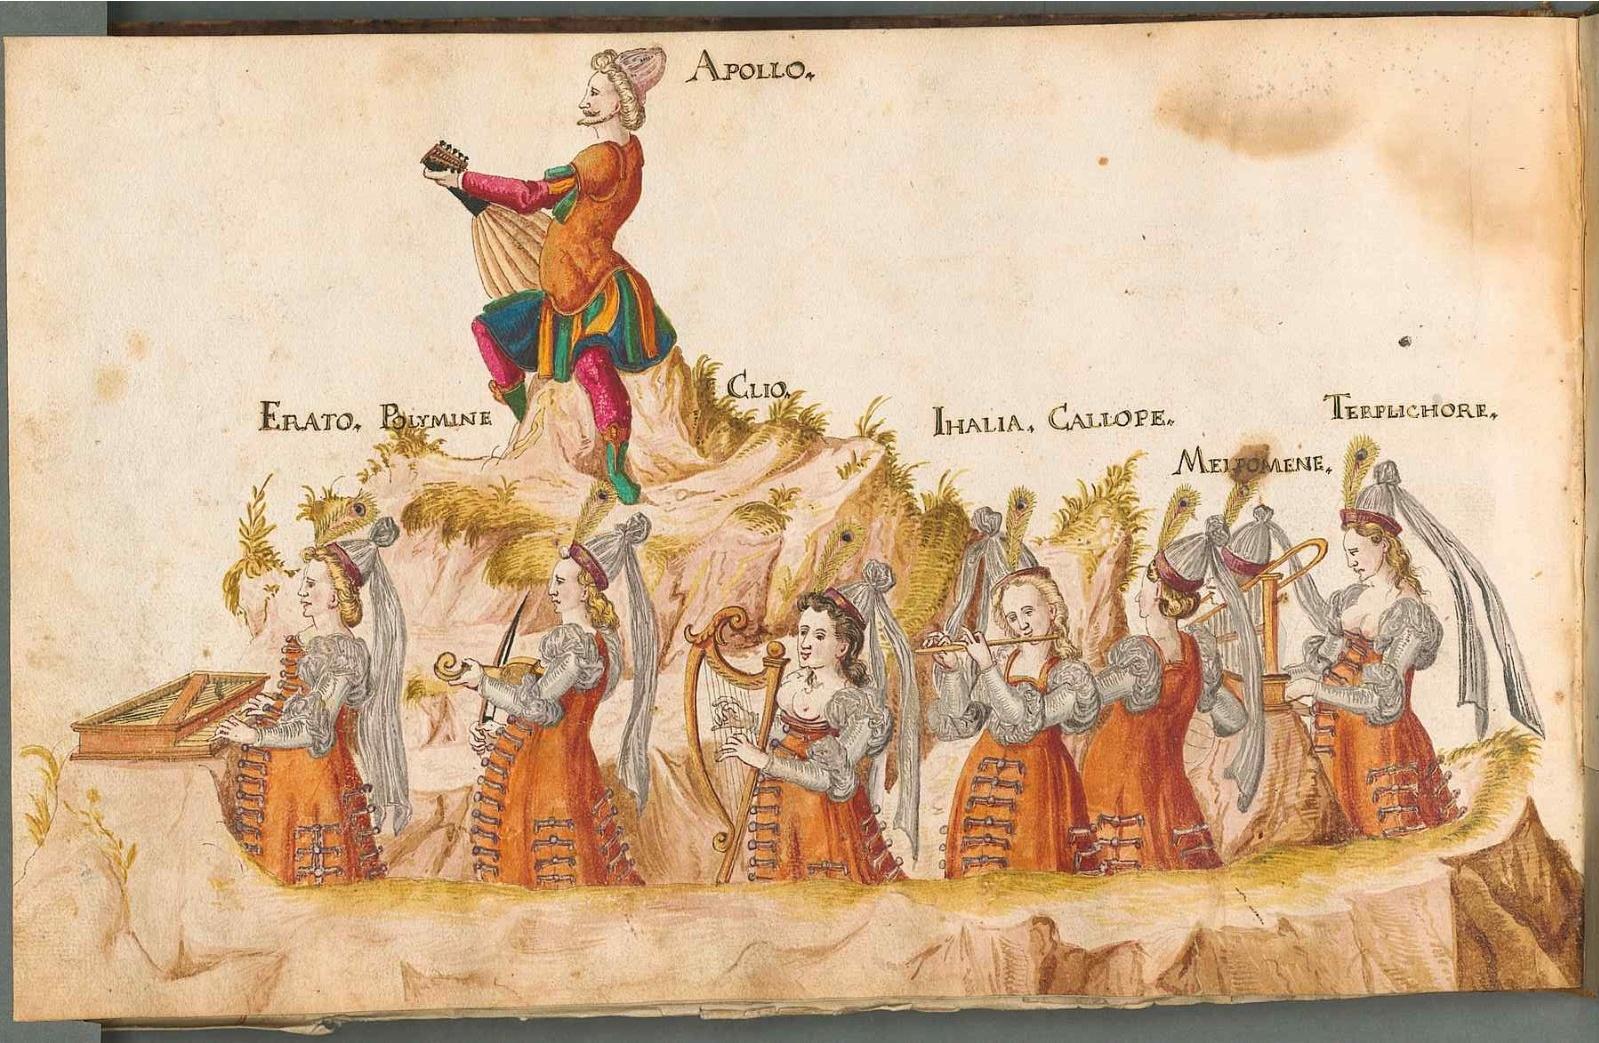 APOLLO.
ERATO. POLYMINE
CLIO.
IHALIA. CALLOPE.
MELPOMENE.
TERPLICHORE.